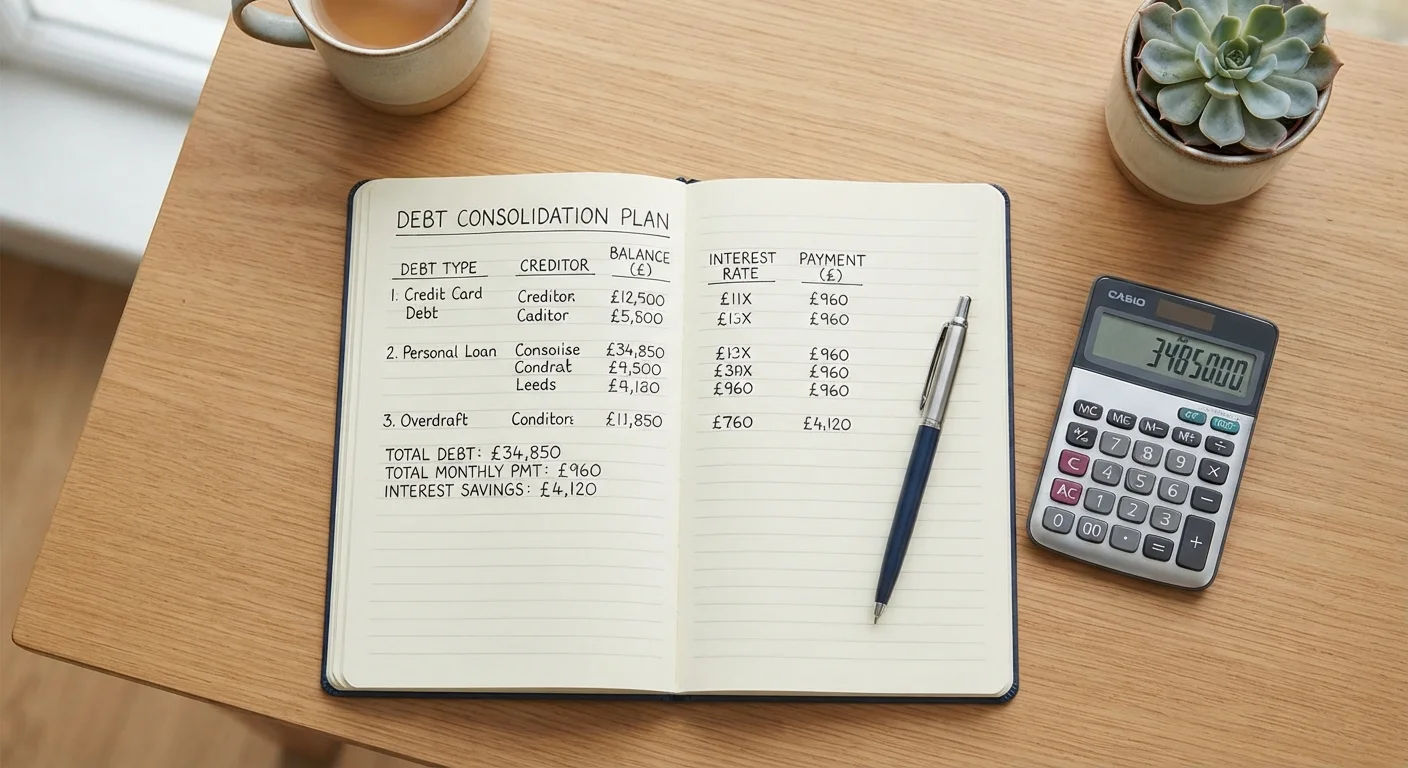 DEBT CONSOLIDATION PLAN
DEBT TYPE CREDITOR BALANCE (£) INTEREST RATE PAYMENT (£)
1. Credit Card Creditor £12,500 £11X £960
Debt Caditor £5,800 £960
2. Personal Loan Consolise £34,850 £13X £960
Condrat £9,500 £960
Leeds £960 £960
3. Overdraft £11,850 £760 £4,120
TOTAL DEBT: £34,850
TOTAL MONTHLY PMT: £960
INTEREST SAVINGS: £4,120
CASIO
MC M- M+ ÷
7 8 9 ×
C 4 5 6 −
AC 1 2 3 +
0 00 · =